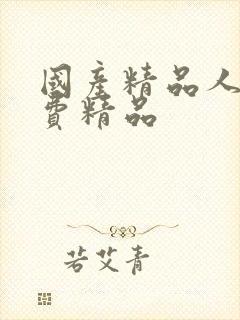 國產精品人
費精品
若艾青